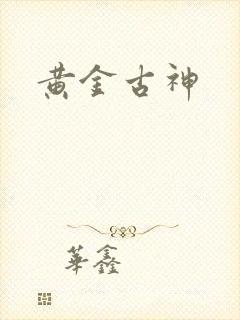 黄金古神
華鑫